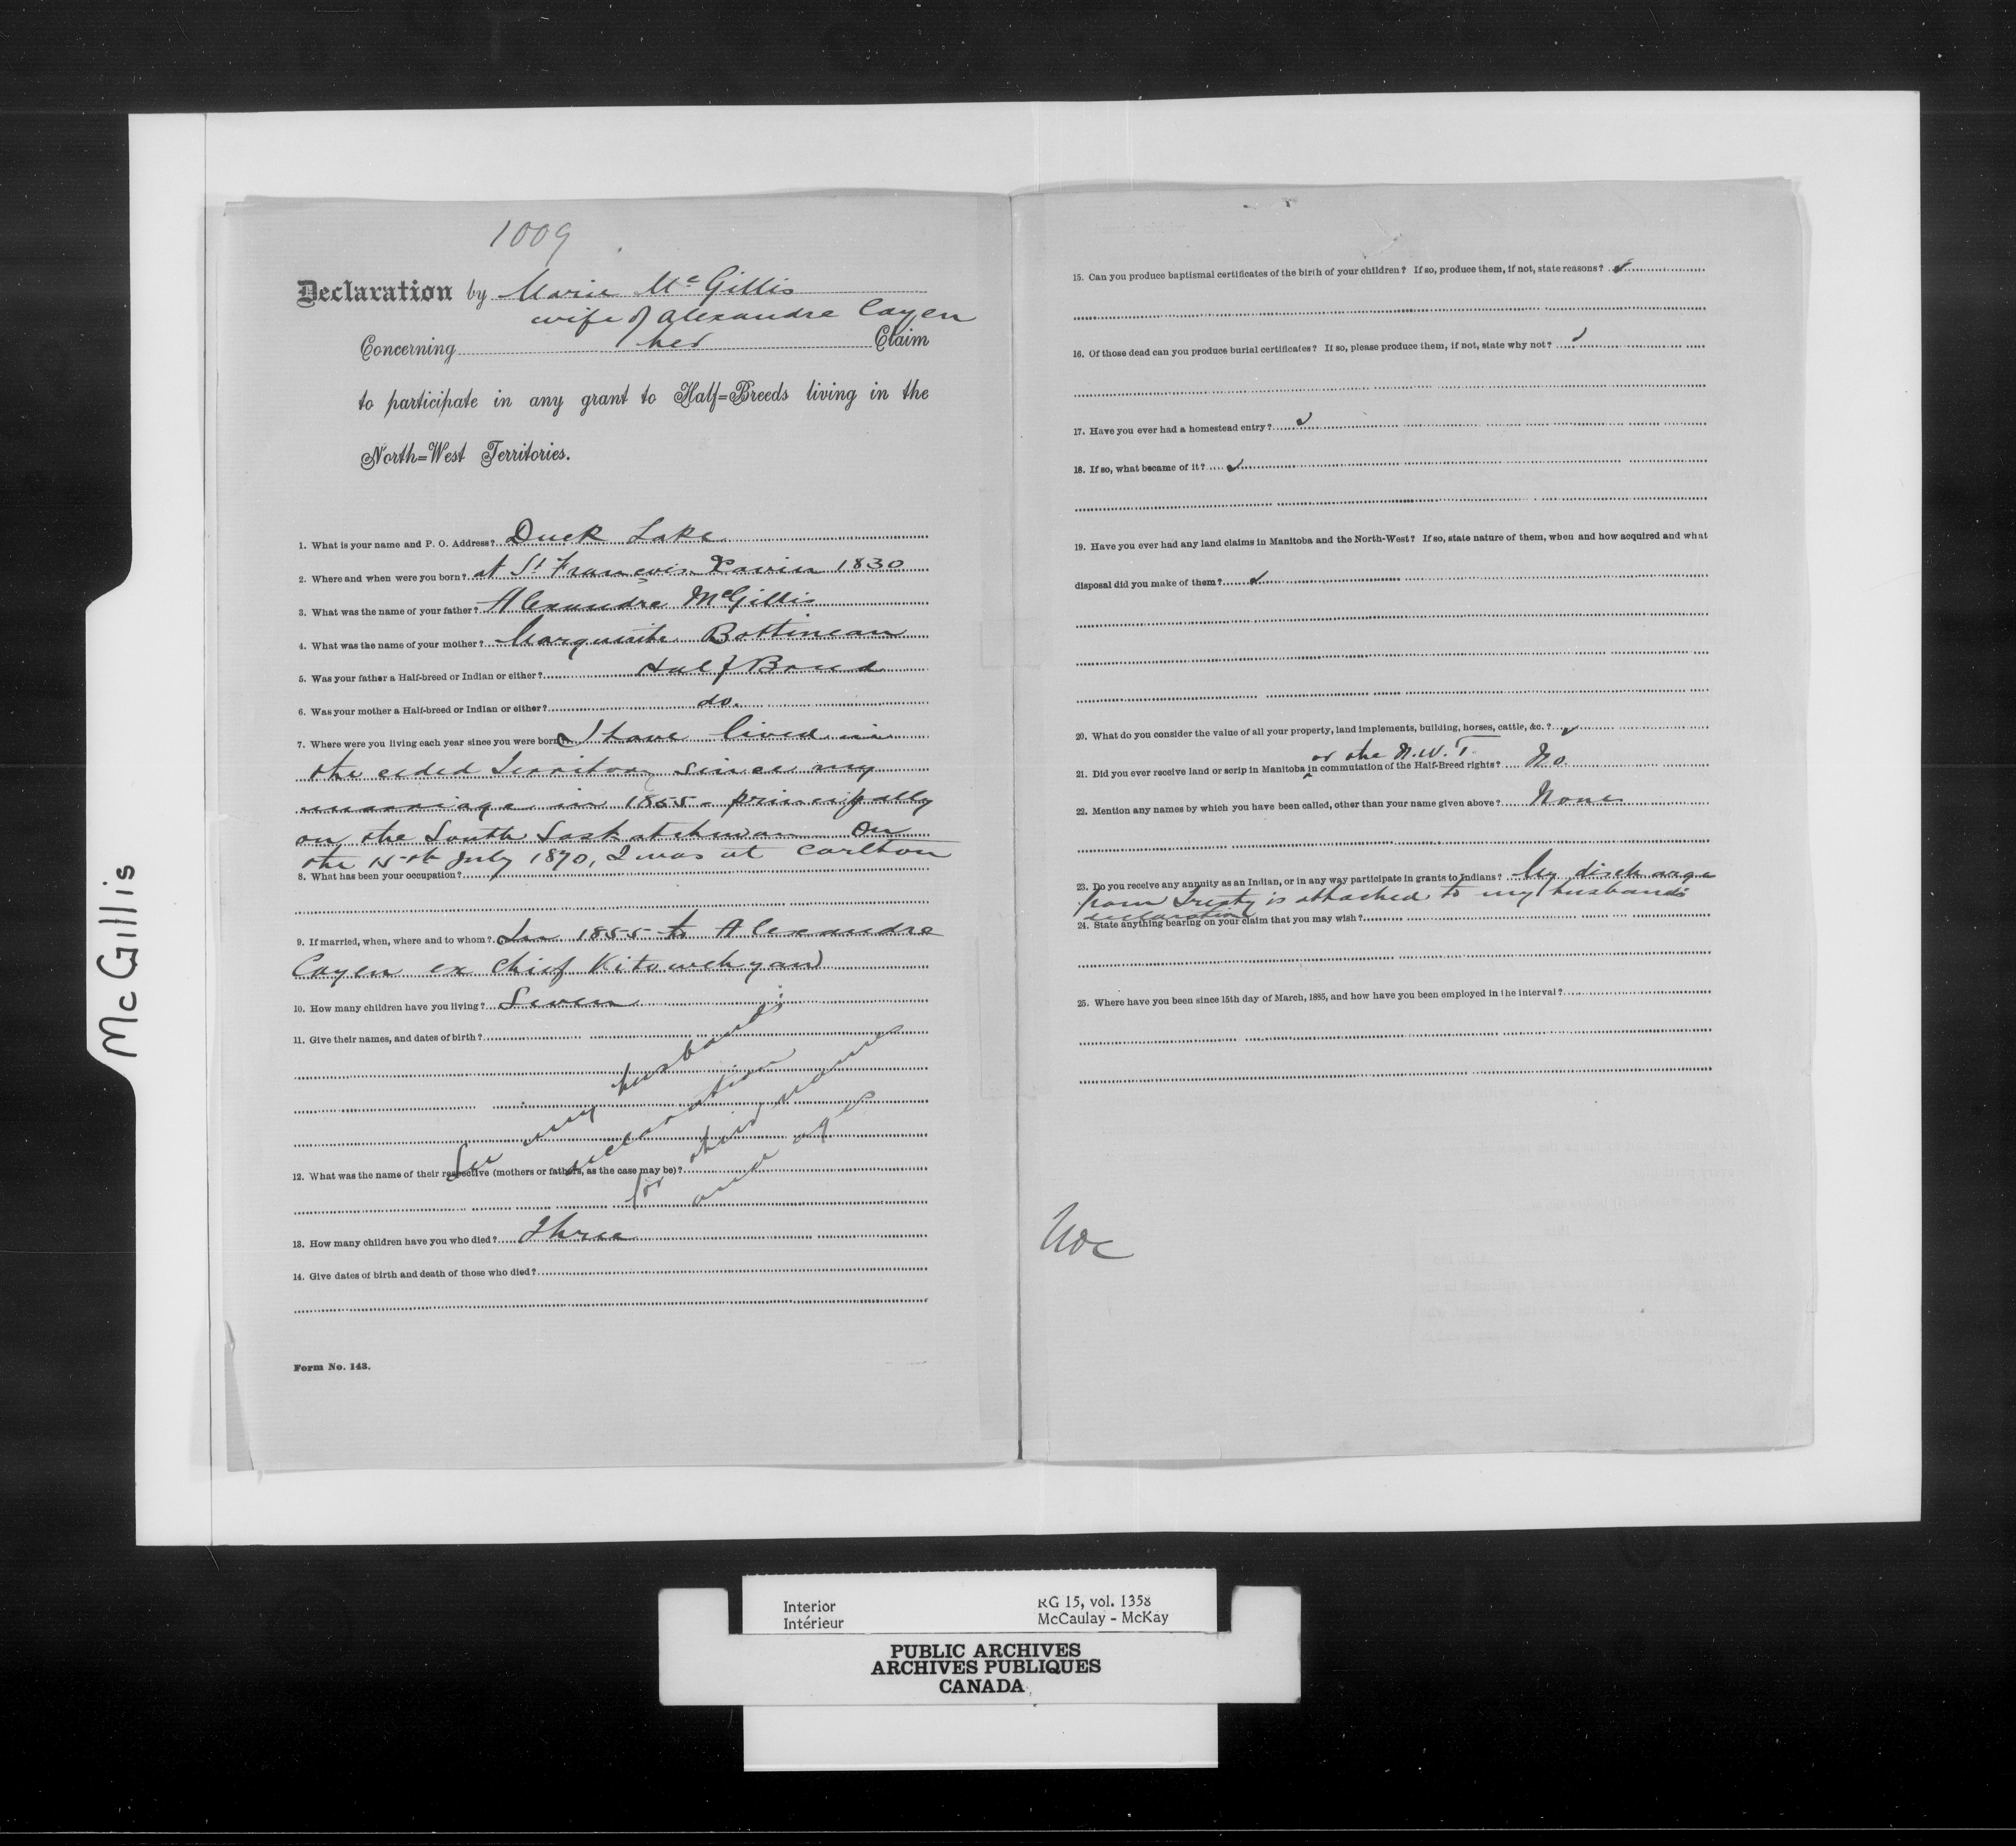 McGillis
1009
Declaration by Marie McGillis
wife of Alexandre Cayen
Concerning her Claim
to participate in any grant to Half=Breeds living in the
North=West Territories.
1. What is your name and P. O. Address? Duck Lake
2. Where and when were you born? at St François Xavier 1830
3. What was the name of your father? Alexandre McGillis
4. What was the name of your mother? Marguerite Bottineau
5. Was your father a Half-breed or Indian or either? Half Breed
6. Was your mother a Half-breed or Indian or either? do.
7. Where were you living each year since you were born? I have lived in
the ceded Territory since my
marriage in 1855 - principally
on the South Saskatchewan On
the 15th July 1870, I was at Carlton
8. What has been your occupation?
9. If married, when, where and to whom? In 1855 to Alexandre
Cayen ex Chief Kitowehyan
10. How many children have you living? Seven
11. Give their names, and dates of birth?
See my husband's
declaration
for their names
and age
12. What was the name of their respective (mothers or fathers, as the case may be)?
13. How many children have you who died? Three
14. Give dates of birth and death of those who died?
Form No. 143.
15. Can you produce baptismal certificates of the birth of your children? If so, produce them, if not, state reasons?
16. Of those dead can you produce burial certificates? If so, please produce them, if not, state why not?
17. Have you ever had a homestead entry?
18. If so, what became of it?
19. Have you ever had any land claims in Manitoba and the North-West? If so, state nature of them, when and how acquired and what
disposal did you make of them?
20. What do you consider the value of all your property, land implements, building, horses, cattle, &c.?
or the N.W.T.
21. Did you ever receive land or scrip in Manitoba in commutation of the Half-Breed rights? No.
22. Mention any names by which you have been called, other than your name given above? None
23. Do you receive any annuity as an Indian, or in any way participate in grants to Indians? My discharge
from Treaty is attached to my husband's
declaration
24. State anything bearing on your claim that you may wish?
25. Where have you been since 15th day of March, 1885, and how have you been employed in the interval?
Interior
Intérieur
RG 15, vol. 1358
McCaulay - McKay
PUBLIC ARCHIVES
ARCHIVES PUBLIQUES
CANADA